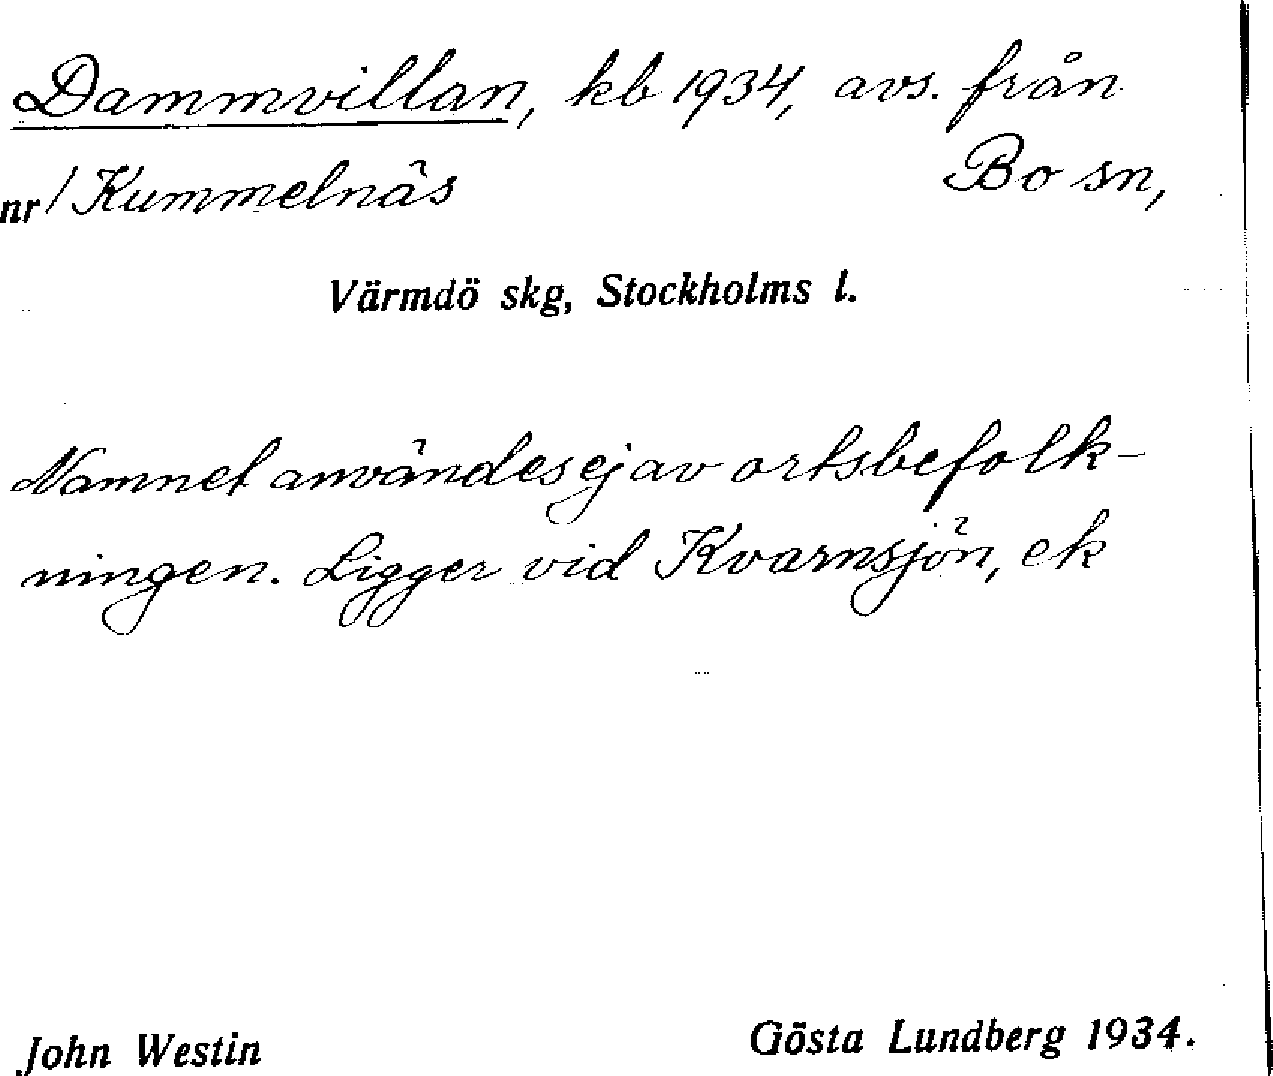 Dammvillan, kb 1934, avs. från
nr 1 Kummelnäs Bo sn,
Värmdö skg, Stockholms l.
Namnet användes ej av ortsbefolk-
ningen. Ligger vid Kvarnsjön, ek
John Westin Gösta Lundberg 1934.